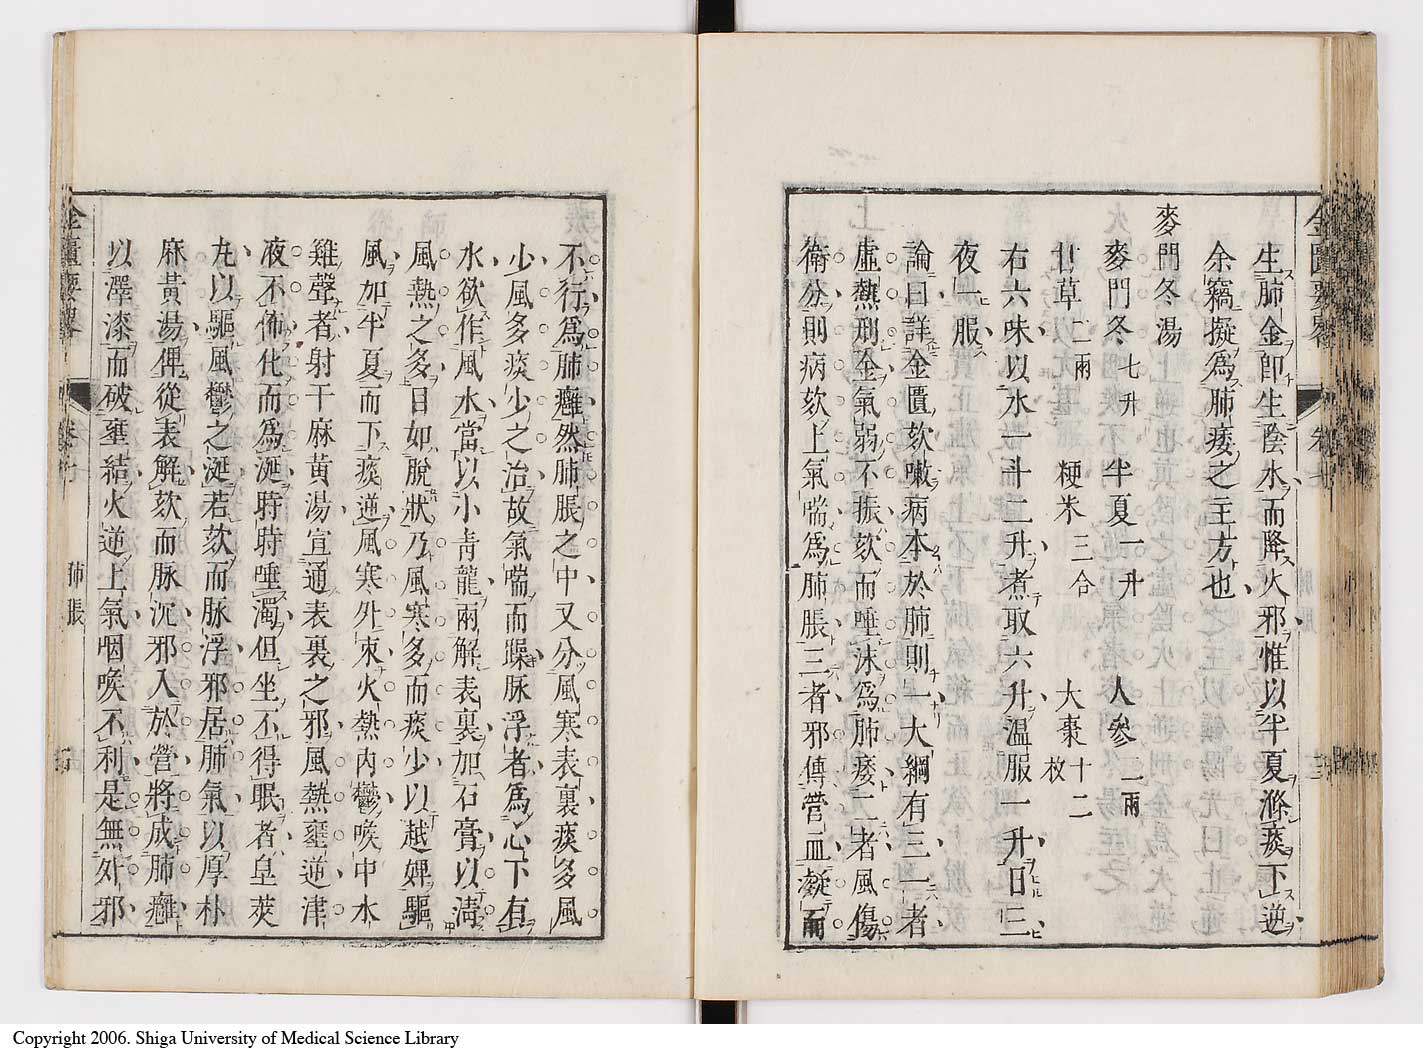 金匱要畧
生肺金卽生陰水而降火邪惟以半夏滌痰下逆
余竊擬爲肺痿之主方也
麥門冬湯
麥門冬七升 半夏一升 人參二兩
甘草二兩 粳米三合 大棗十二枚
右六味以水一斗二升煮取六升溫服一升日三
夜一服
論曰詳金匱欬嗽病本於肺則一大綱有三一者
虛熱刑金氣弱不振欬而唾沫爲肺痿二者風傷
衛分則病欬上氣喘爲肺脹三者邪傳營血凝而
不行爲肺癰然肺脹之中又分風寒表裏痰多風
少風多痰少之治故氣喘而躁脉浮者爲心下有
水欲作風水當以小靑龍兩解表裏加石膏以淸
風熱之多目如脫狀乃風寒多而痰少以越婢驅
風加半夏而下痰逆風寒外束火熱內鬱喉中水
雞聲者射干麻黃湯宣通表裏之邪風熱壅逆津
液不佈化而為涎時時唾濁但坐不得眠者皂莢
丸以驅風鬱之涎若欬而脉浮邪居肺氣以厚朴
麻黃湯俾從表解欬而脉沉邪入於營將成肺癰
以澤漆而破壅結火逆上氣咽喉不利是無外邪
金匱要畧
肺脹
Copyright 2006. Shiga University of Medical Science Library